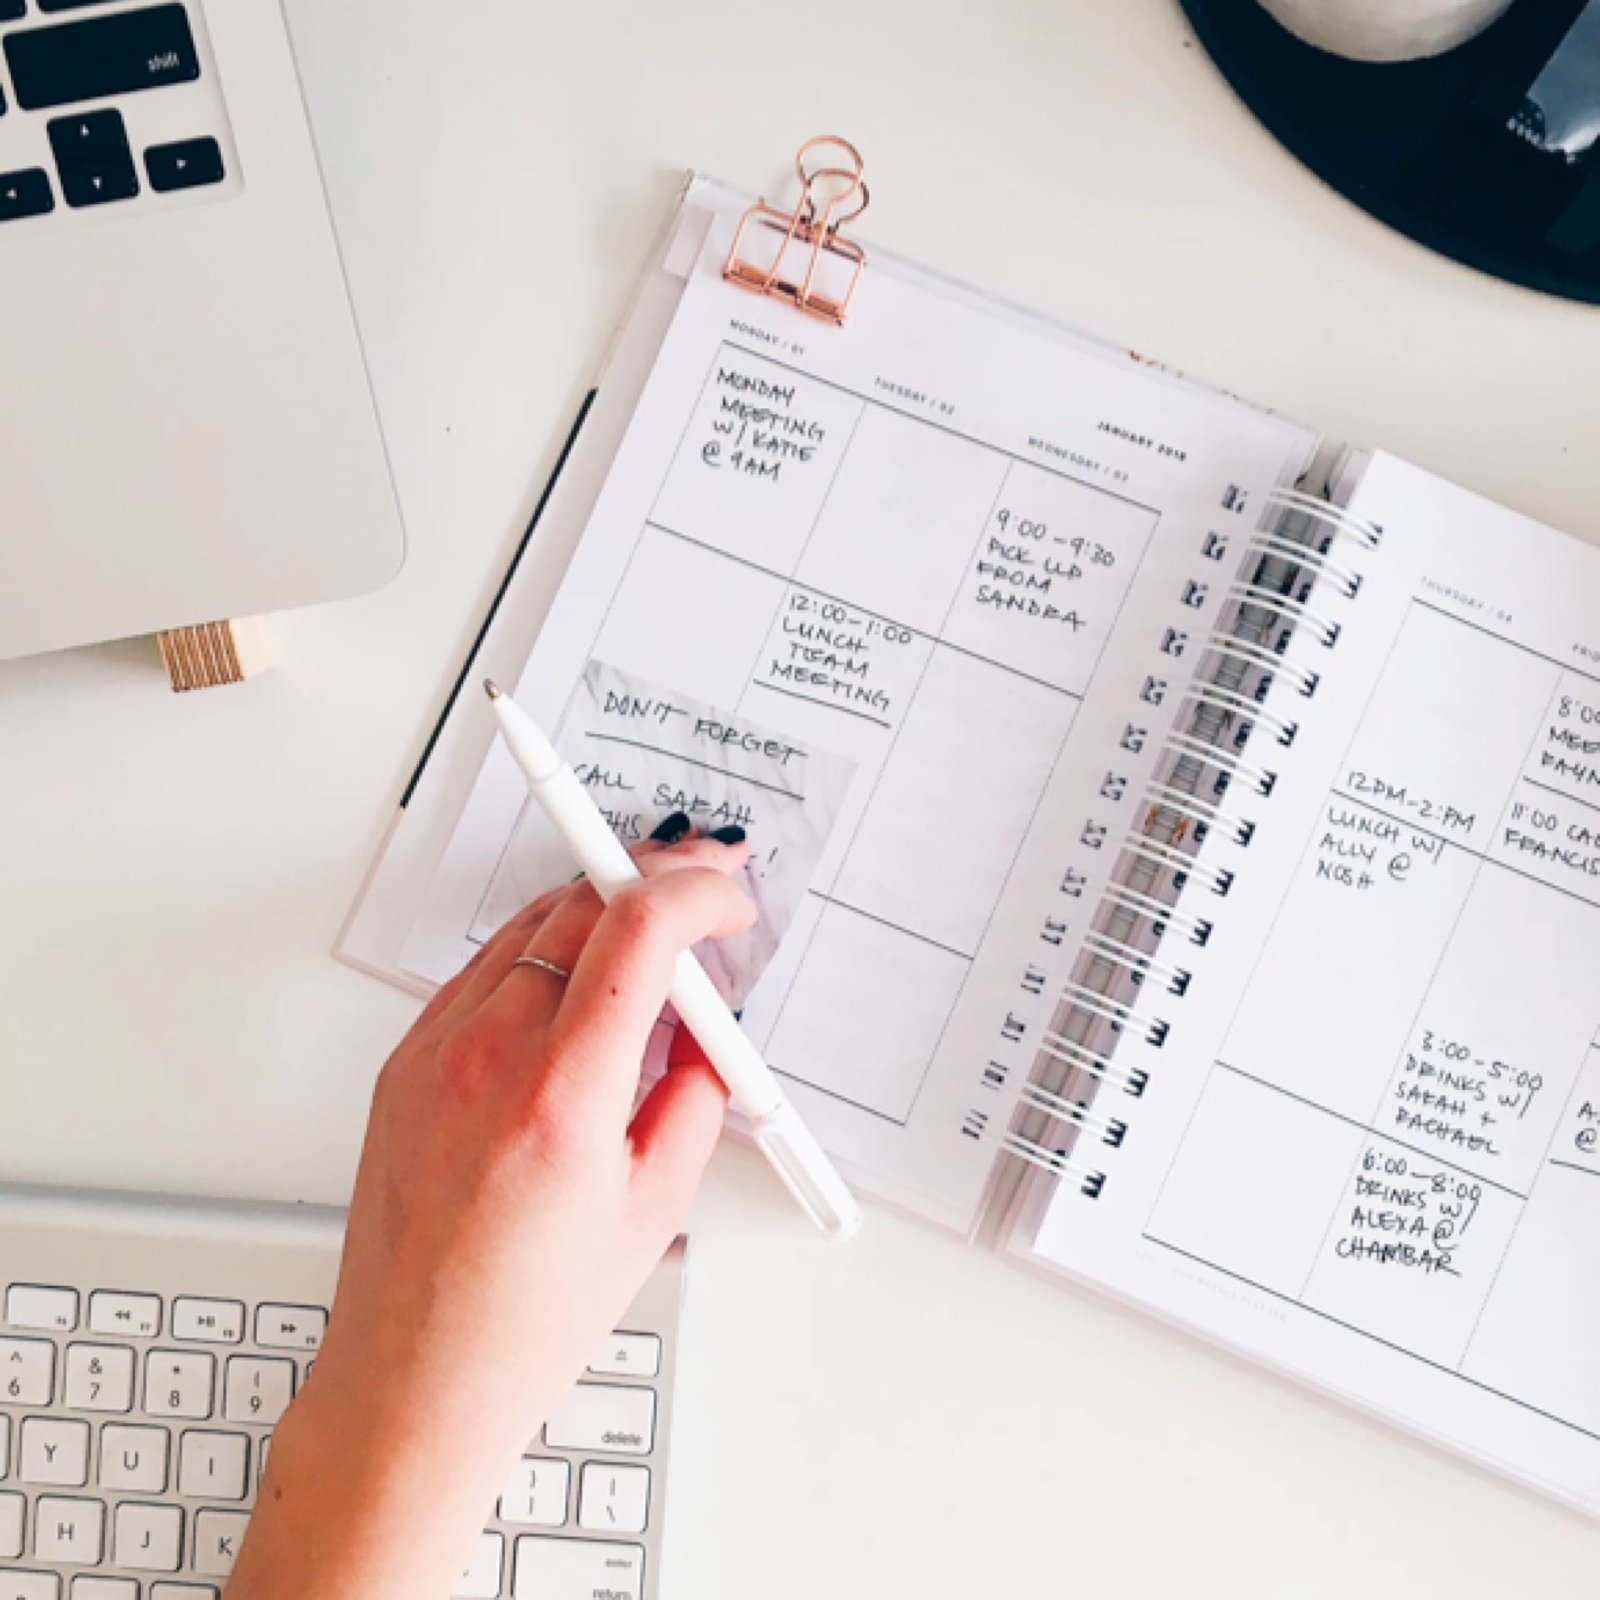 shift
MONDAY / 01
TUESDAY / 02
JANUARY 2018
WEDNESDAY / 03
MONDAY
MEETING
W/ KATIE
@ 9AM
12:00-1:00
LUNCH
TEAM
MEETING
9:00-9:30
PICK UP
FROM
SANDRA
DON'T FORGET
CALL SARAH
THURSDAY / 04
12PM-2:PM
LUNCH W/
ALLY @
NOSH
8:00
11:00
3:00-5:00
DRINKS W/
SARAH +
RACHAEL
6:00-8:00
DRINKS W/
ALEXA @
CHAMBAR
@
^ & * (
6 7 8 9
delete
Y U I
} |
] \
H J K
enter
return